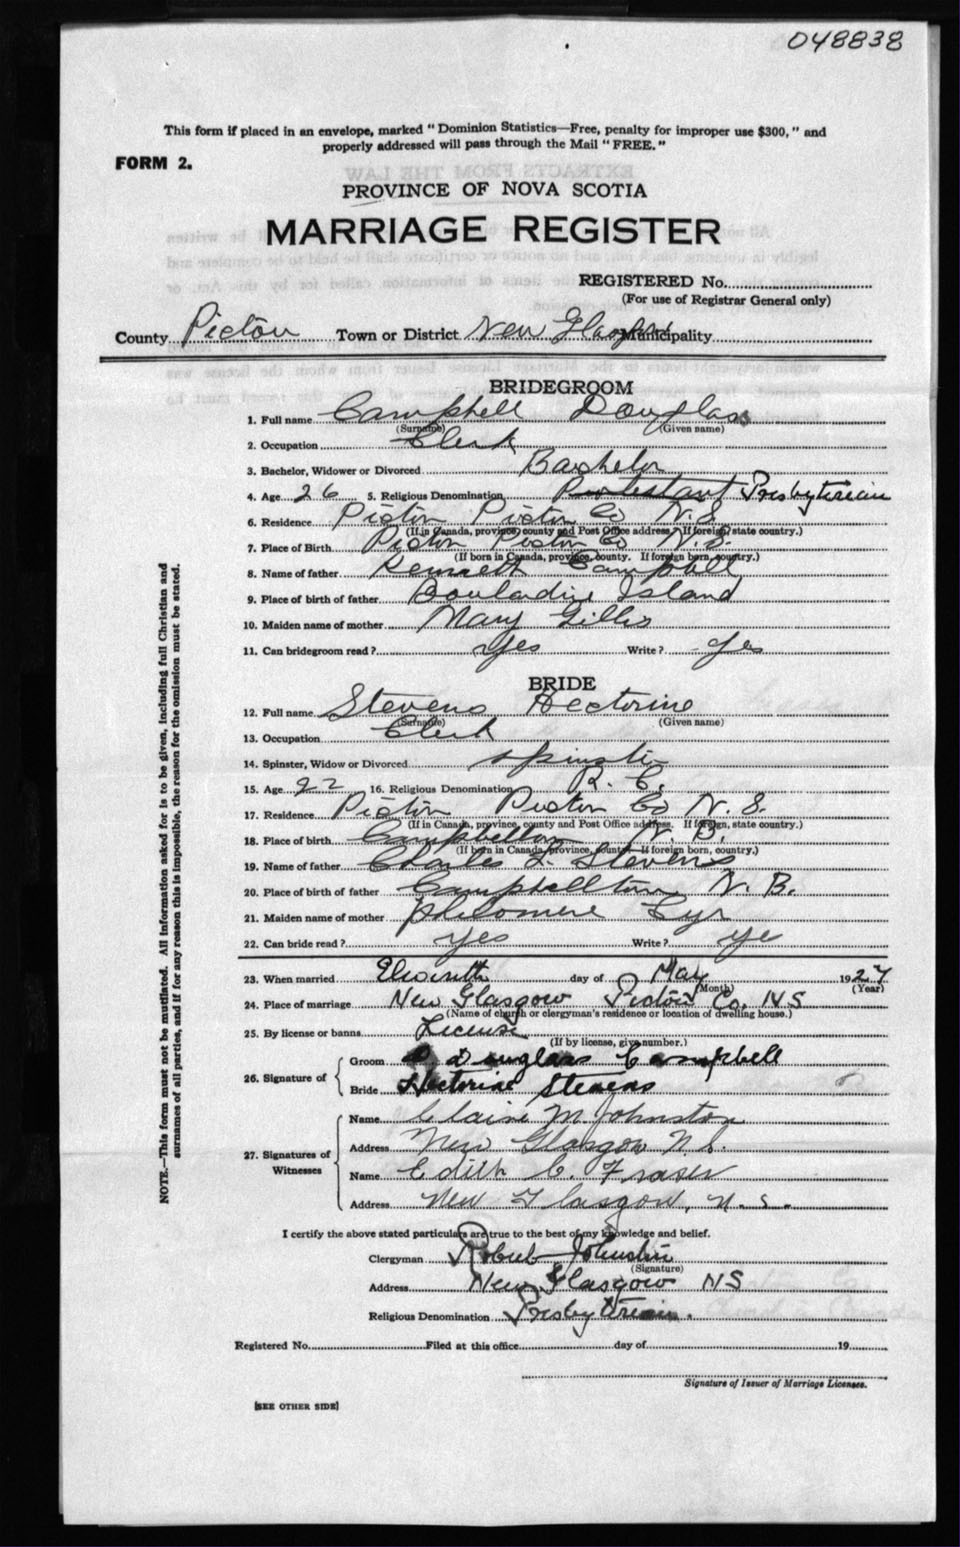 048838
This form if placed in an envelope, marked "Dominion Statistics—Free, penalty for improper use $300," and
properly addressed will pass through the Mail "FREE."
FORM 2.
PROVINCE OF NOVA SCOTIA
MARRIAGE REGISTER
REGISTERED No.
(For use of Registrar General only)
County Pictou Town or District New Glasgow Municipality
BRIDEGROOM
1. Full name Campbell Douglas
(Surname) (Given name)
2. Occupation Clerk
3. Bachelor, Widower or Divorced Bachelor
4. Age 26 5. Religious Denomination Protestant Presbyterian
6. Residence Pictou Pictou Co N.S.
(If in Canada, province, county and Post Office address. If foreign, state country.)
7. Place of Birth Pictou Pictou Co N.S.
(If born in Canada, province, county. If foreign born, country.)
8. Name of father Kenneth Campbell
9. Place of birth of father Island
10. Maiden name of mother Mary Gillis
11. Can bridegroom read? Yes Write? Yes
BRIDE
12. Full name Stevens Hectorine
(Surname) (Given name)
13. Occupation Clerk
14. Spinster, Widow or Divorced Spinster
15. Age 22 16. Religious Denomination R. C.
17. Residence Pictou Pictou Co N. S.
(If in Canada, province, county and Post Office address. If foreign, state country.)
18. Place of birth Campbellton N. B.
(If born in Canada, province, county. If foreign born, country.)
19. Name of father Charles Stevens
20. Place of birth of father Campbellton N. B.
21. Maiden name of mother Philomene Cyr
22. Can bride read? Yes Write? Ye
23. When married Eleventh day of May 1927
(Month) (Year)
24. Place of marriage New Glasgow Pictou Co. NS
(Name of church or clergyman's residence or location of dwelling house.)
25. By license or banns License
(If by license, give number.)
26. Signature of
Groom D Douglass Campbell
Bride Hectorine Stevens
27. Signatures of Witnesses
Name Claire M. Johnston
Address New Glasgow N.S.
Name Edith C. Fraser
Address New Glasgow, N.S.
I certify the above stated particulars are true to the best of my knowledge and belief.
Clergyman Robert Johnston
(Signature)
Address New Glasgow NS
Religious Denomination Presbyterian.
Registered No. Filed at this office day of 19
Signature of Issuer of Marriage Licenses.
[SEE OTHER SIDE]
NOTE.—This form must not be mutilated. All information asked for is to be given, including full Christian and
surnames of all parties, and if for any reason this is impossible, the reason for the omission must be stated.